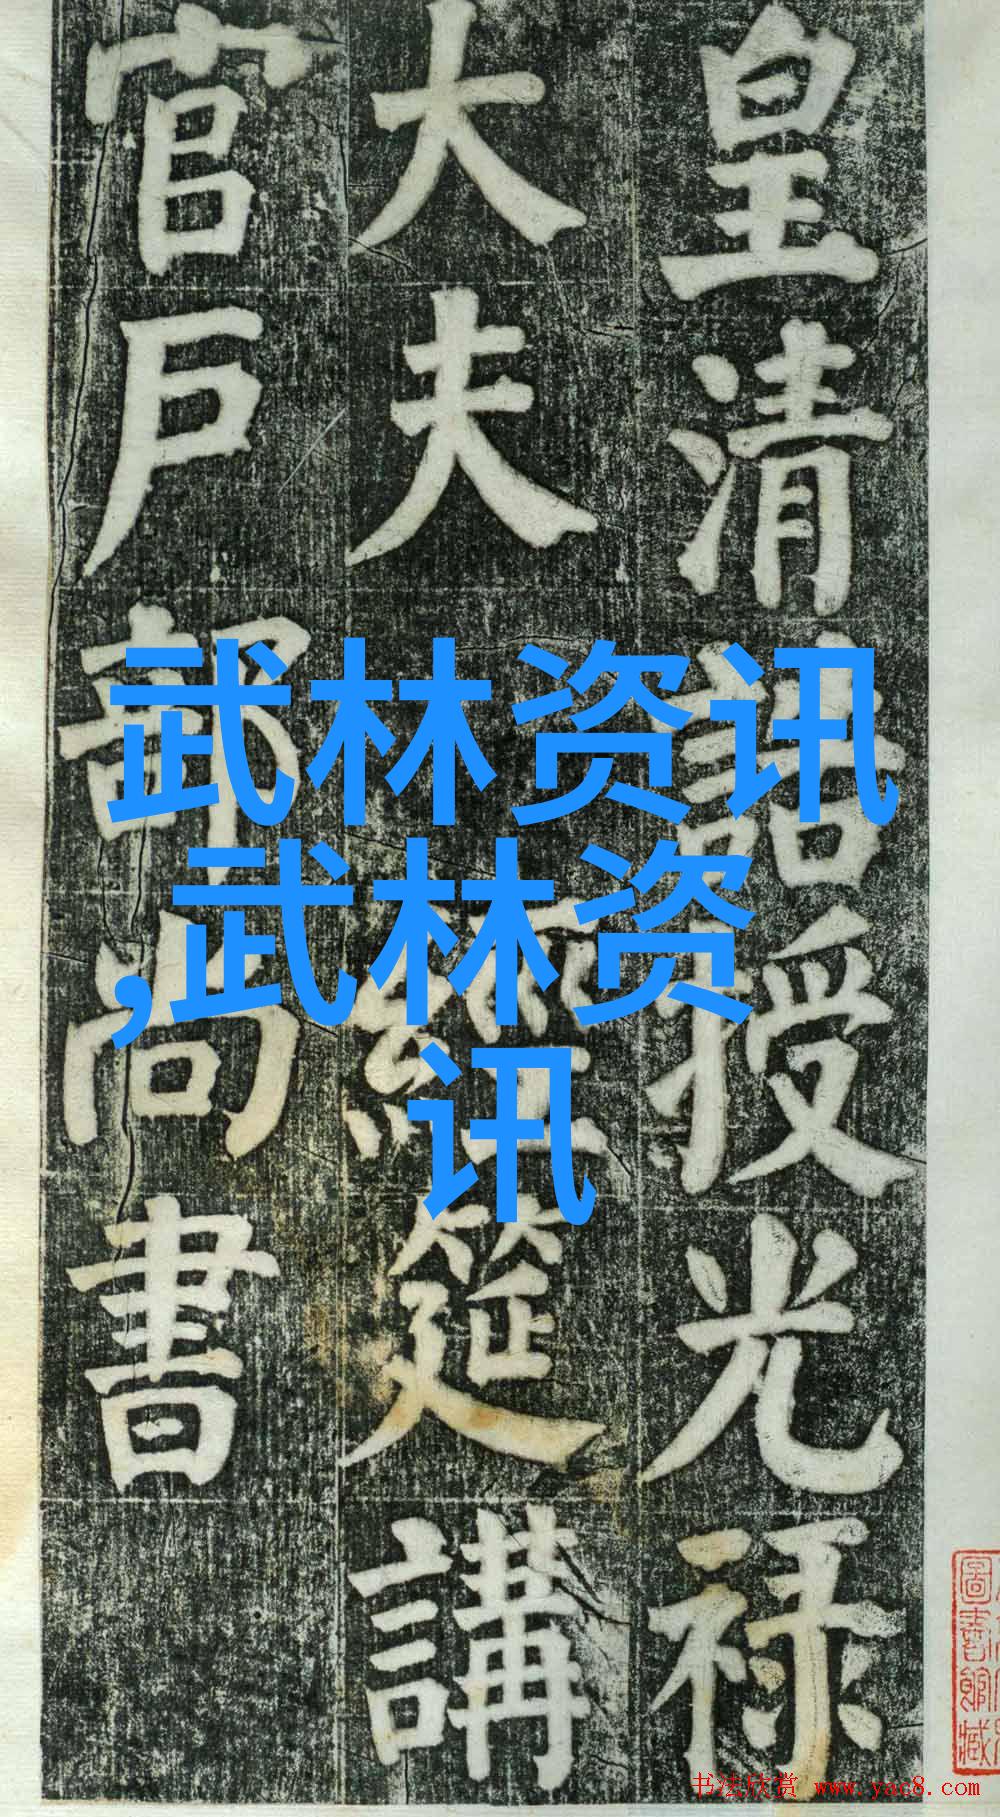 皇清誥授光禄
大夫
經筵講
官戶部尚書
武林资讯
,武林资
讯
圖書館藏
书法欣赏 www.yac8.com